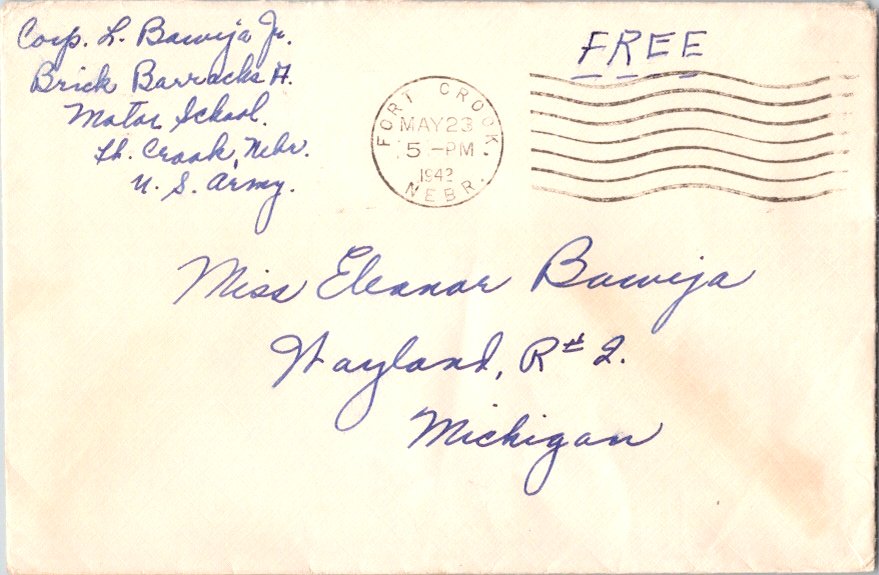 Corp. L. Bawija Jr.
Brick Barracks A.
Motor School.
Ft. Crook, Nebr.
U. S. Army.
FREE
FORT CROOK.
MAY 23
5 -PM
1942
NEBR.
Miss Eleanor Bawija
Wayland, R# 2.
Michigan